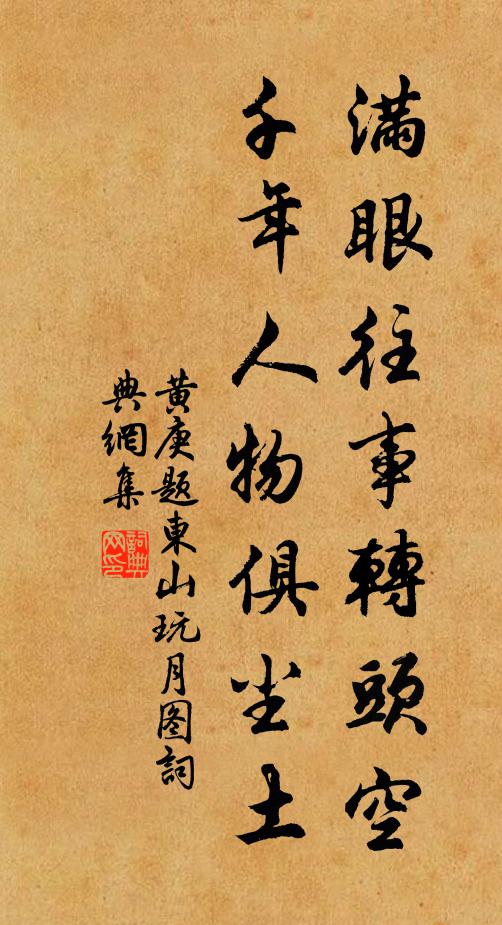 滿眼往事轉頭空
千年人物俱尘土
黄庚題東山玩月图詞
典網集
詞典網印